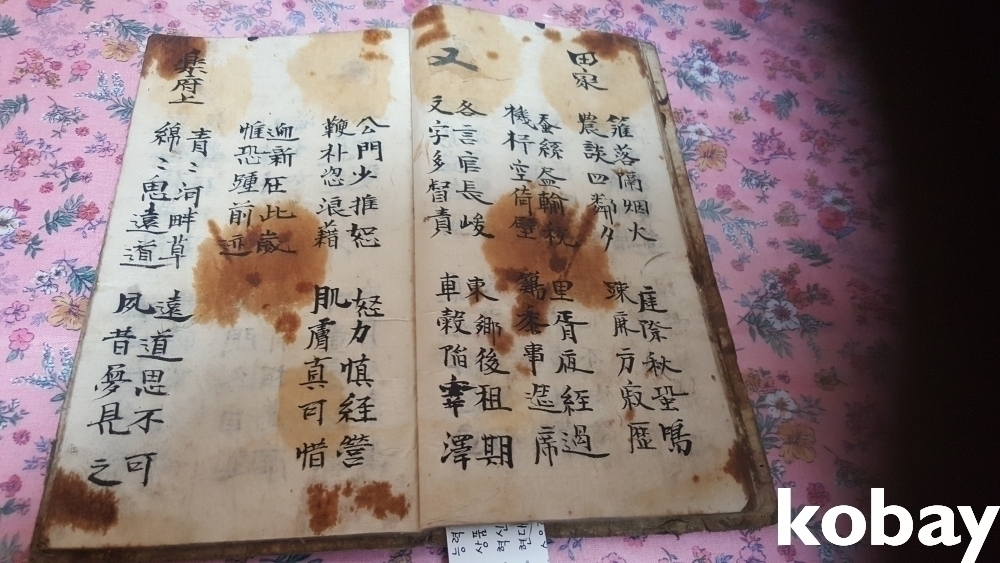 田家
籬落隔烟火
農談四鄰夕
庭際秋蛩鳴
疎麻方寂歷
蚕絲盡輸税
機杼空倚壁
里胥夜經過
鷄黍事筵席
又
各言官長峻
文字多督責
東鄉後租期
車轂陷澤
公門少推恕
鞭朴恣浪藉
力慎經營
肌膚真可惜
迎新在此歲
惟恐踵前迹
樂府上
青〻河畔草
綿〻思遠道
遠道思不可
夙昔夢見之
kobay